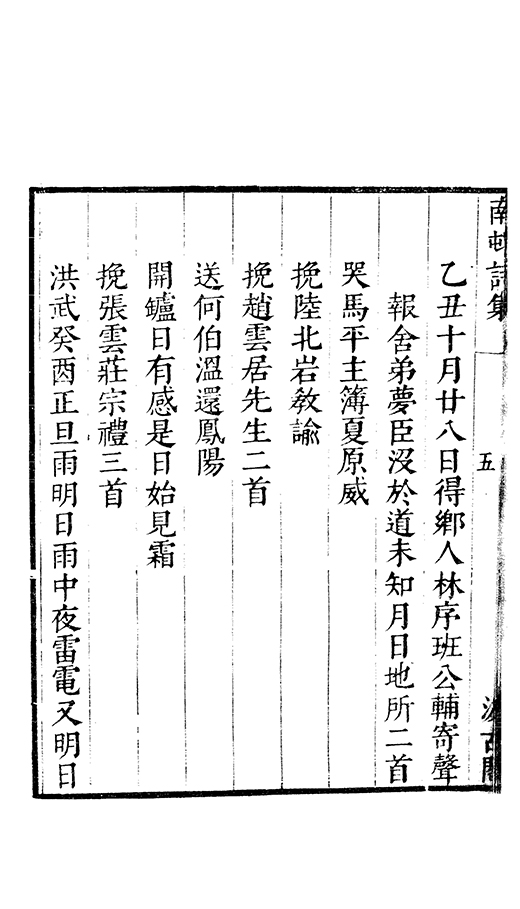 南邨詩集
五
汲古閣
乙丑十月廿八日得鄉人林序班公輔寄聲
報舍弟夢臣沒於道未知月日地所二首
哭馬平主簿夏原威
挽陸北岩教諭
挽趙雲居先生二首
送何伯溫還鳳陽
開鑪日有感是日始見霜
挽張雲莊宗禮三首
洪武癸酉正旦雨明日雨中夜雷電又明日